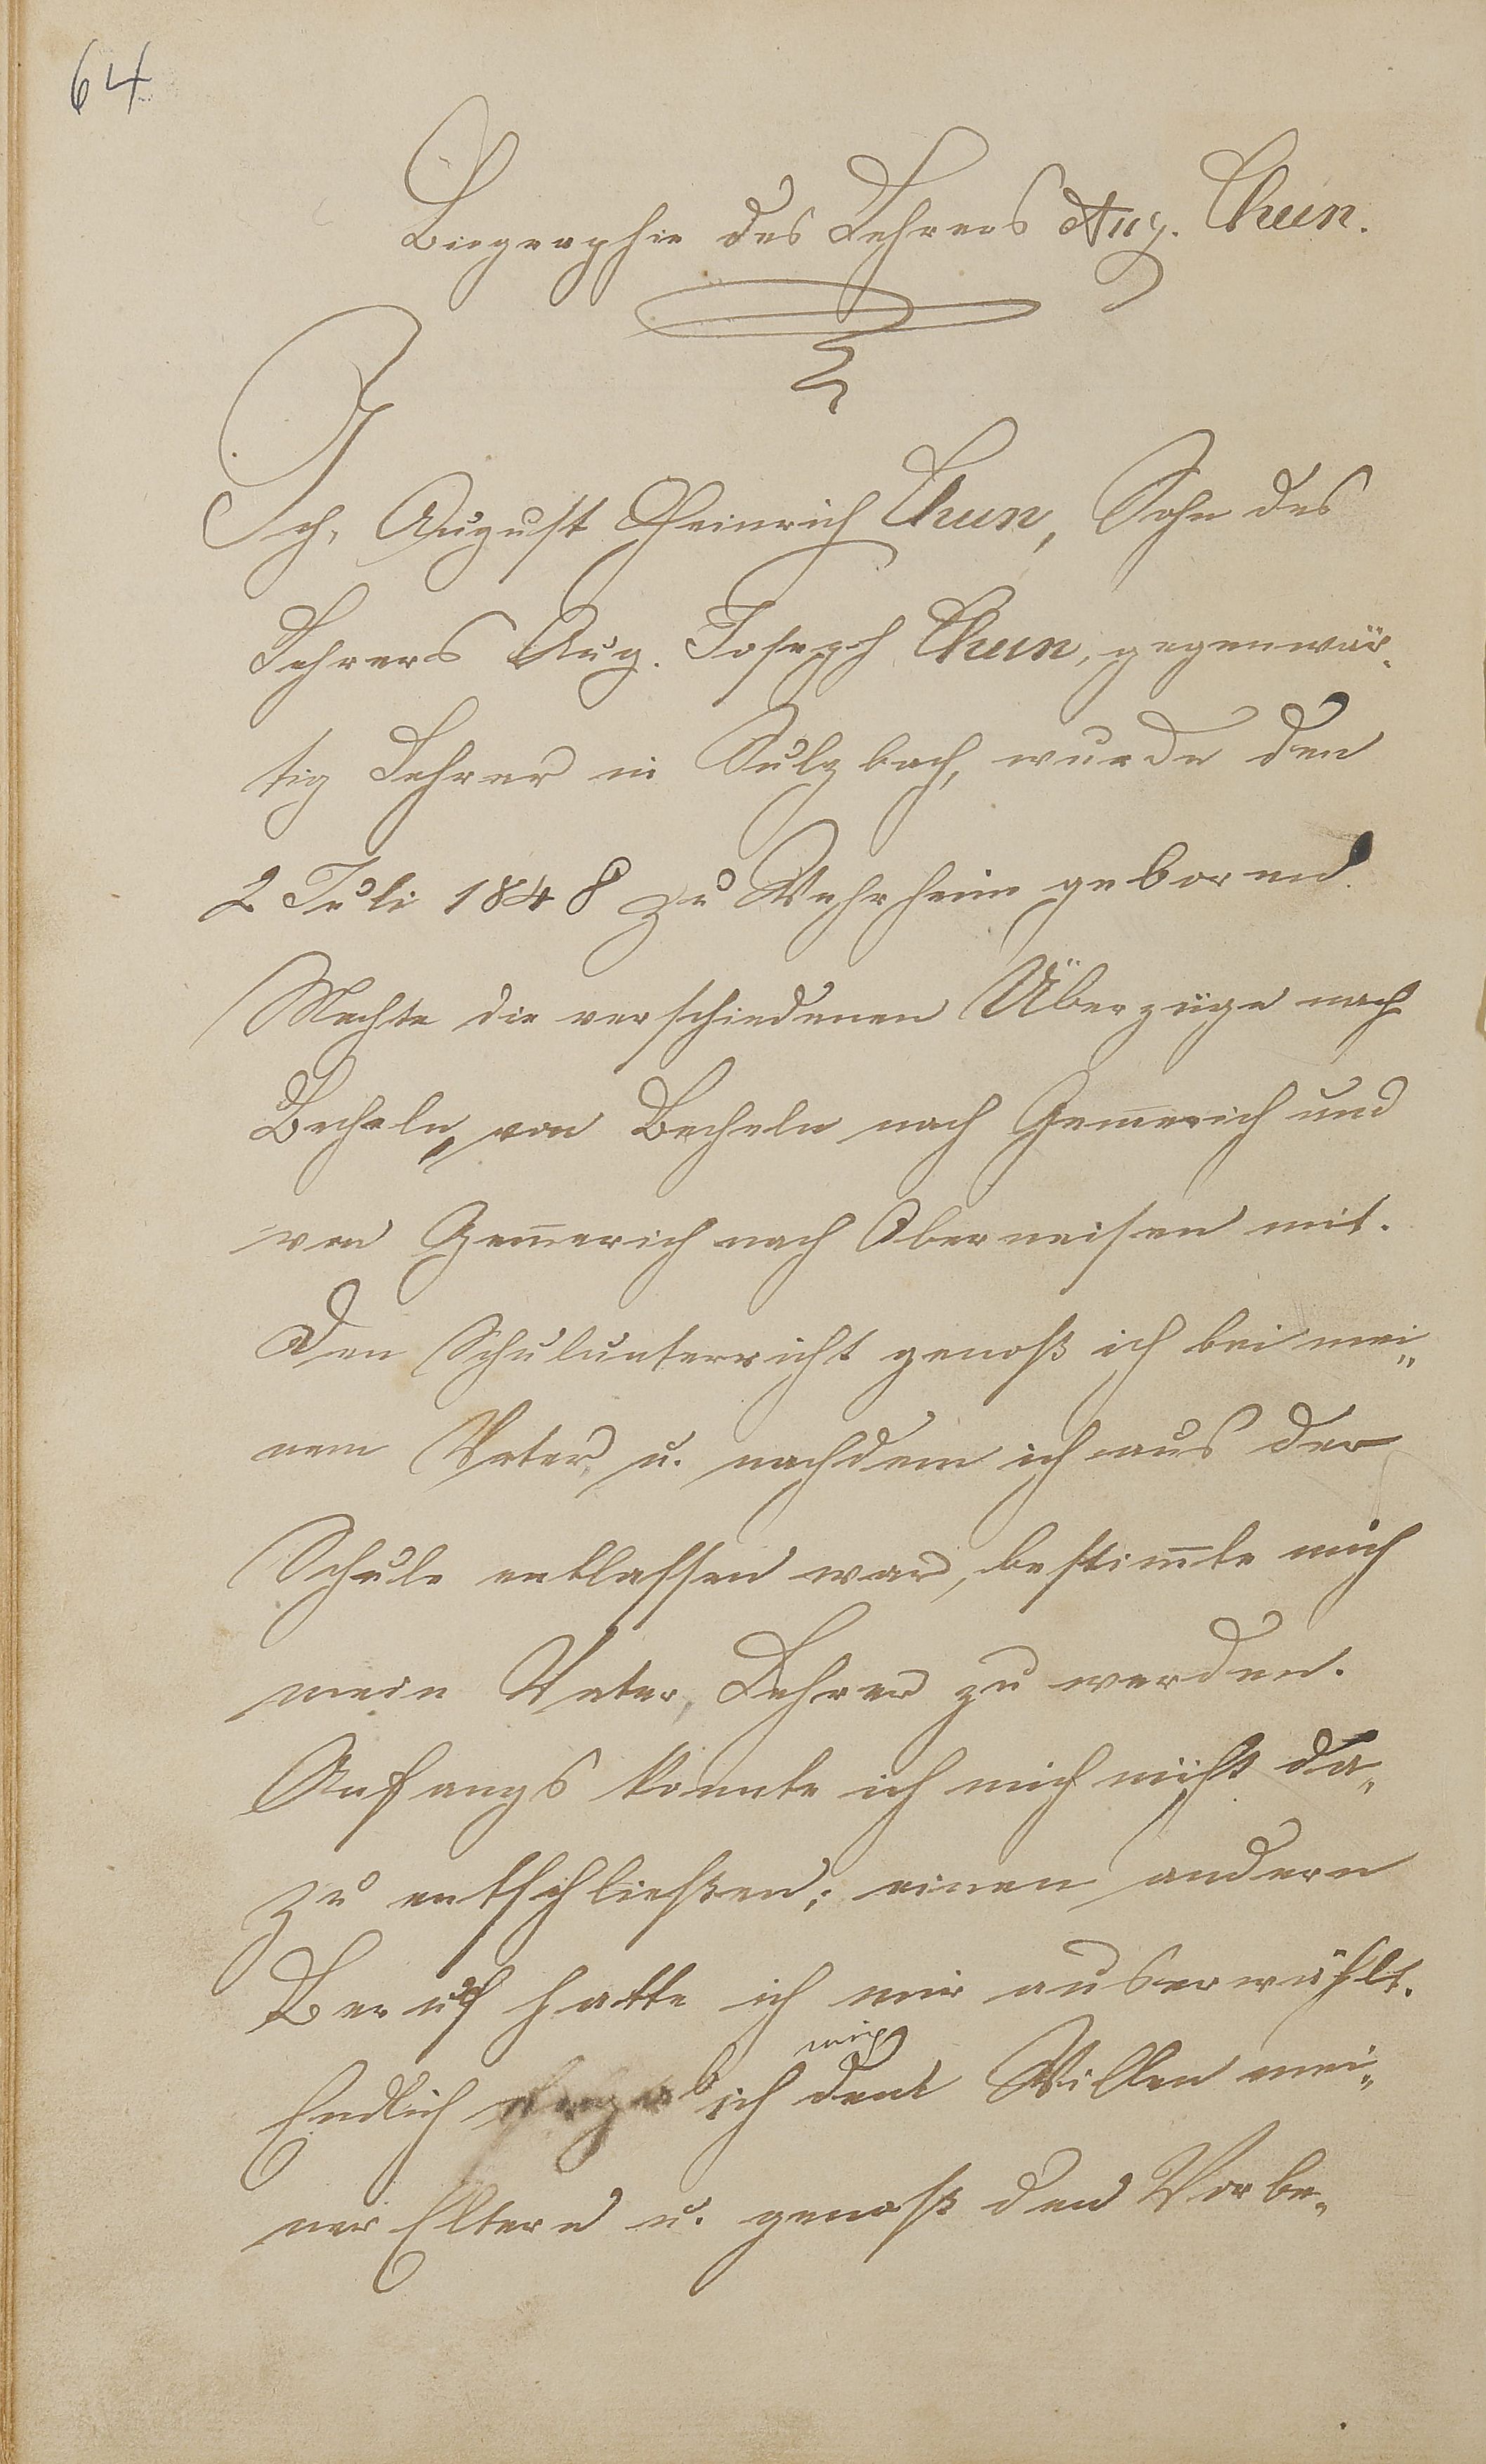 64
Biographie des Lehrers Aug. Thun.
Ich, August Heinrich Thun, Sohn des
Lehrers Aug. Joseph Thun, gegenwär-
tig Lehrer in Sulzbach, wurde den
2 Juli 1848 zu Wehrheim geboren.
Machte die verschiedenen Überzüge nach
Becheln, von Becheln nach Gem̄erich und
von Gem̄erich nach Oberneisen mit.
Den Schulunterricht genoß ich bei mei„
nem Vater u. nachdem ich aus der
Schule entlassen war, bestim̄te mich
mein Vater, Lehrer zu werden.
Anfangs konnte ich mich nicht da„
zu entschließen; einen andern
Beruf hatte ich mir auserwählt.
mich
Endlich ergab ich dem Willen mei„
ner Eltern u. genoß den Vorbe„